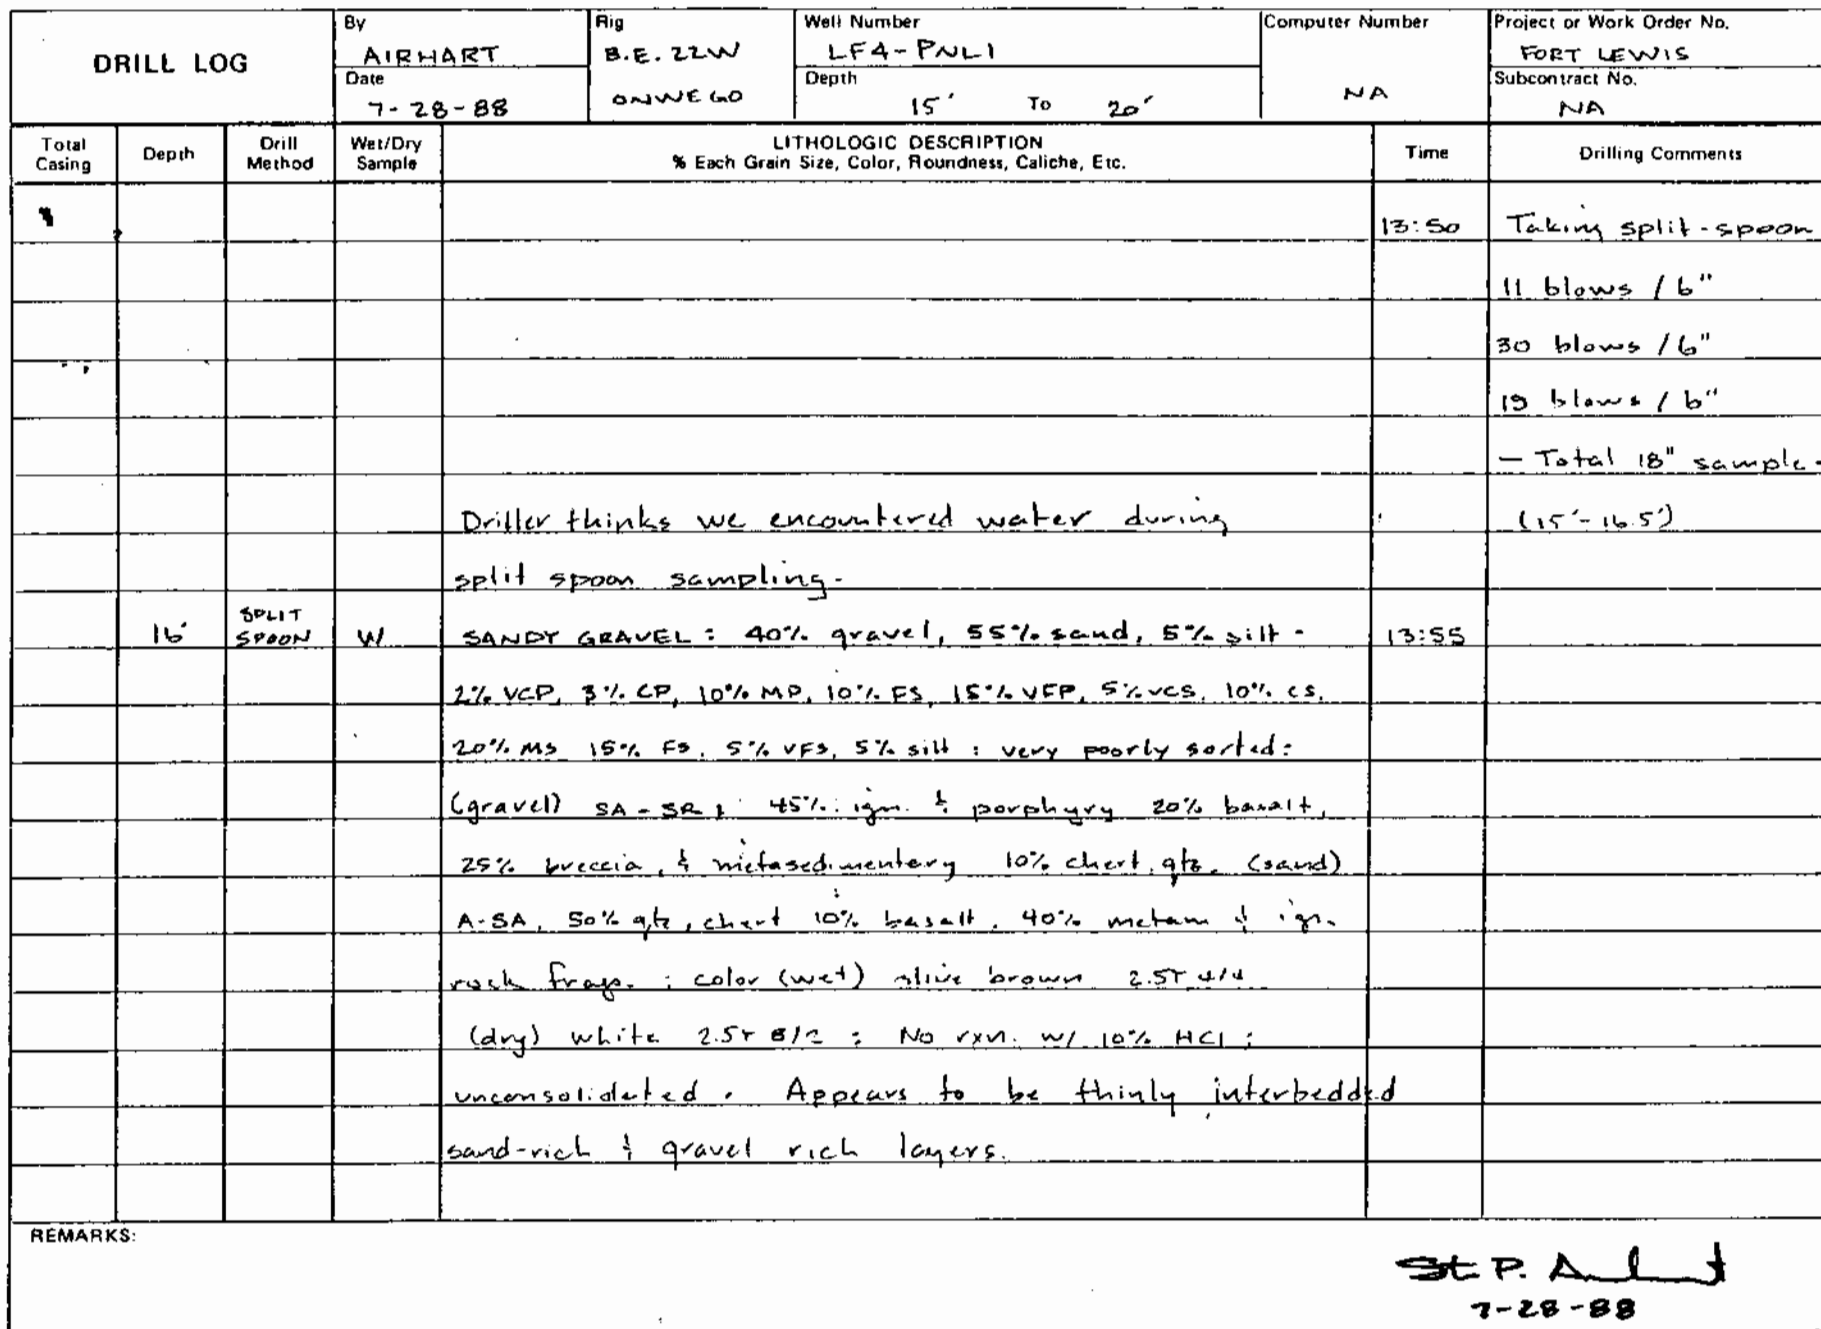 DRILL LOG
By
AIRHART
Date
7-28-88
Rig
B.E. 22W
ONWEGO
Well Number
LF4-PNL1
Depth
15' To 20'
Computer Number
NA
Project or Work Order No.
FORT LEWIS
Subcontract No.
NA
Total Casing
Depth
Drill Method
Wet/Dry Sample
LITHOLOGIC DESCRIPTION
% Each Grain Size, Color, Roundness, Caliche, Etc.
Time
Drilling Comments
13:50 Taking split-spoon
11 blows / 6"
30 blows / 6"
19 blows / 6"
- Total 18" sample.
Driller thinks we encountered water during (15'-16.5')
split spoon sampling.
16' SPLIT SPOON W SANDY GRAVEL: 40% gravel, 55% sand, 5% silt - 13:55
2% VCP, 3% CP, 10% MP, 10% FS, 15% VFP, 5% VCS, 10% CS,
20% MS 15% FS, 5% VFS, 5% silt : very poorly sorted:
(gravel) SA-SR, 45% ign. & porphyry 20% basalt,
25% breccia, & metasedimentery 10% chert, qtz. (sand)
A-SA, 50% qtz, chert 10% basalt, 40% metam & ign.
rock frags. : color (wet) olive brown 2.5Y 4/4
(dry) white 2.5Y 8/2 : No rxn. w/ 10% HCl ;
unconsolidated. Appears to be thinly interbedded
sand-rich & gravel rich layers.
REMARKS:
St P.
7-28-88